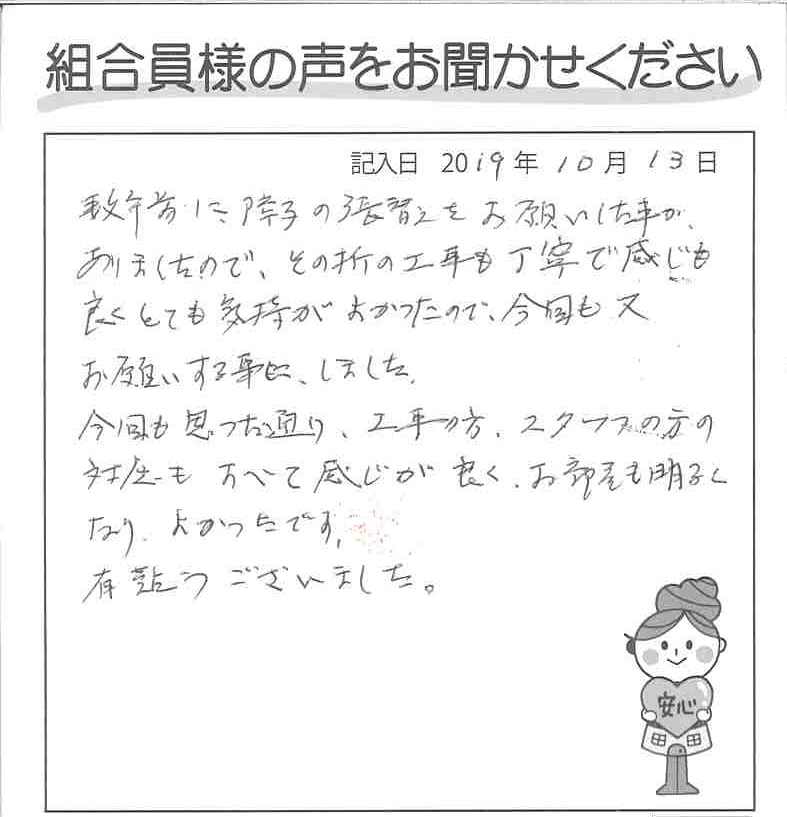 組合員様の声をお聞かせください
記入日 2019年 10月 13日
数年前に、障子の張替えをお願いした事が、
ありましたので、その折の工事も丁寧で感じも
良くとても気持がよかったので、今回も又
お願いする事に、しました。
今回も思った通り、工事の方、スタッフの方の
対応もすべて感じが良く、お部屋も明るく
なり、よかったです。
有難うございました。
安心